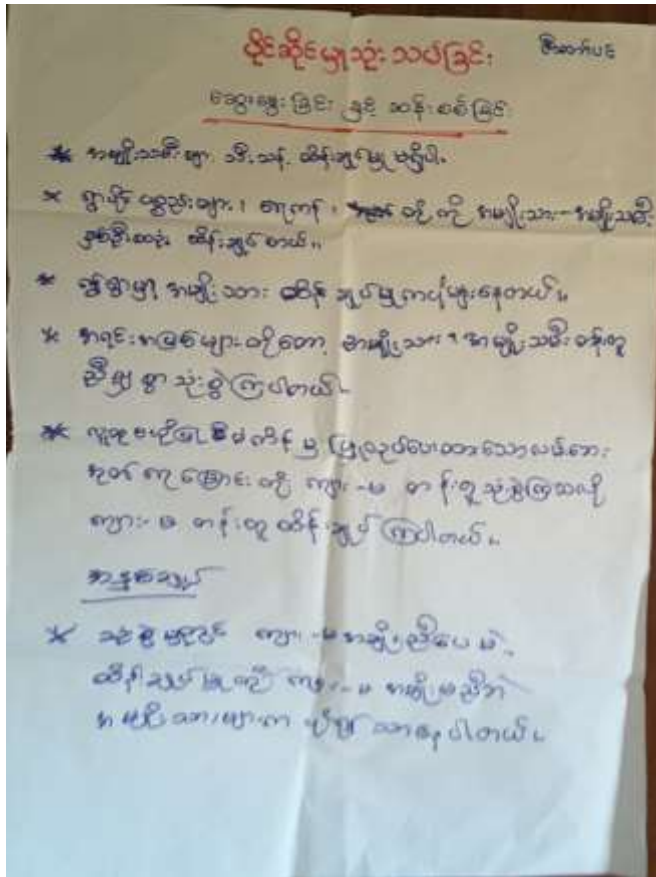 ပိုင်ဆိုင်မှုသုံးသပ်ခြင်း
ဆွေးနွေးခြင်း နှင့် ဆန်းစစ်ခြင်း
* အမျိုးသမီးများ သီးသန့် ထိန်းချုပ်မှု မရှိပါ။
* ရွာပိုင်ပစ္စည်းများ၊ ရေကန်၊ တို့ကို အမျိုးသား-အမျိုးသမီး
နှစ်ဦးစလုံး ထိန်းချုပ်တယ်။
* အမျိုးသား ထိန်းချုပ်မှုက ပိုများနေတယ်။
* အရင်းအမြစ်များတို့တော့ အမျိုးသား၊ အမျိုးသမီး တန်းတူ
ညီမျှစွာ သုံးစွဲကြပါတယ်။
* စီမံကိန်းမှ ပြုလုပ်ပေးထားသော
တို့ ကျား-မ တန်းတူ သုံးစွဲကြသလို
ကျား-မ တန်းတူ ထိန်းချုပ်ကြပါတယ်။
အနှစ်ချုပ်
* သုံးစွဲမှုတွင် ကျား-မ အချိုးညီပေမဲ့
ထိန်းချုပ်မှုတွင် ကျား-မ အချိုးမညီဘဲ
အမျိုးသားများက ပို၍ သာနေပါတယ်။